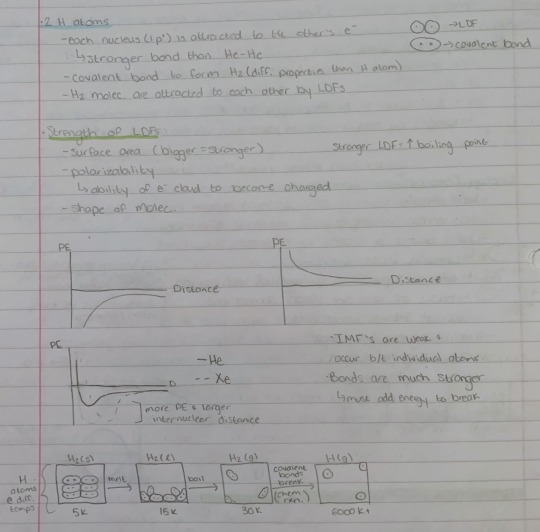 ·2 H atoms
-each nucleus (1p⁺) is attracted to the other's e⁻
→LDF
↳stronger bond than He-He
→covalent bond
-covalent bond to form H₂ (diff. properties than H atom)
-H₂ molec. are attracted to each other by LDFs
·Strength of LDFs
-surface area (bigger = stronger)
stronger LDF=↑ boiling point
-polarizability
↳ability of e⁻ cloud to become charged
-shape of molec.
PE
Distance
PE
Distance
PE
D
-He
-- Xe
more PE + larger
internuclear distance
·IMF's are weak +
occur b/t individual atoms
·Bonds are much stronger
↳must add energy to break
H
atoms
@ diff.
temps
H₂(s)
5K
melt
H₂(l)
15K
boil
H₂(g)
30K
covalent
bonds
break
(chem.
rxn.)
H(g)
6000K+